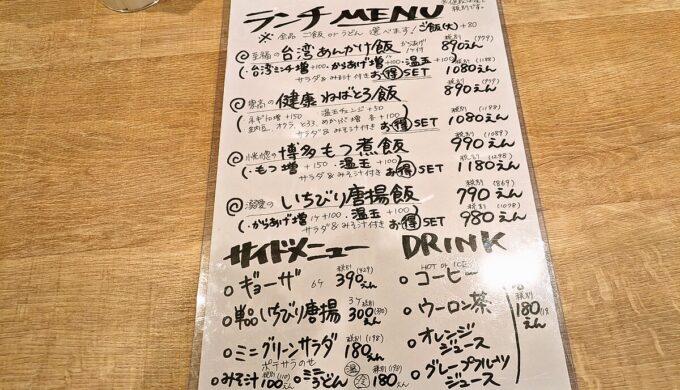 ランチMENU
税別です。
※ 全品 ご飯 or うどん 選べます! ご飯(大)+80
至福の 台湾あんかけ飯 からあげ 1ケ付 税別 890えん (979)
(・台湾ミンチ増 +100・からあげ増 +100・温玉 +100)
サラダ&みそ汁付き お得SET 税別 1080えん (1188)
崇高の 健康ねばとろ飯 税別 890えん
ネギトロ増 +150 温玉チェンジ +50
納豆、オクラ、とろろ、めかぶ増 各+100
サラダ&みそ汁付き お得SET 1080えん (1188)
恍惚の 博多もつ煮飯 税別 990えん (1088)
(・もつ増 +150 ・温玉 +100)
サラダ&みそ汁付き お得SET 税別 1180えん (1298)
溺愛の いちびり唐揚飯 税別 790えん (869)
(・からあげ増 1ケ+100 ・温玉 +100)
サラダ&みそ汁付き お得SET 税別 980えん (1078)
サイドメニュー
ギョーザ 6ケ 税別 390えん (429)
単品いちびり唐揚 3ケ 税別 300えん (330)
ミニグリーンサラダ 税別 180えん (198)
ポテサラのせ
みそ汁 税別 100えん (110)
ミニうどん 温 冷 税別 180えん (198)
DRINK
HOT or ICE
コーヒー
ウーロン茶
オレンジジュース
グレープフルーツジュース
税別 180えん